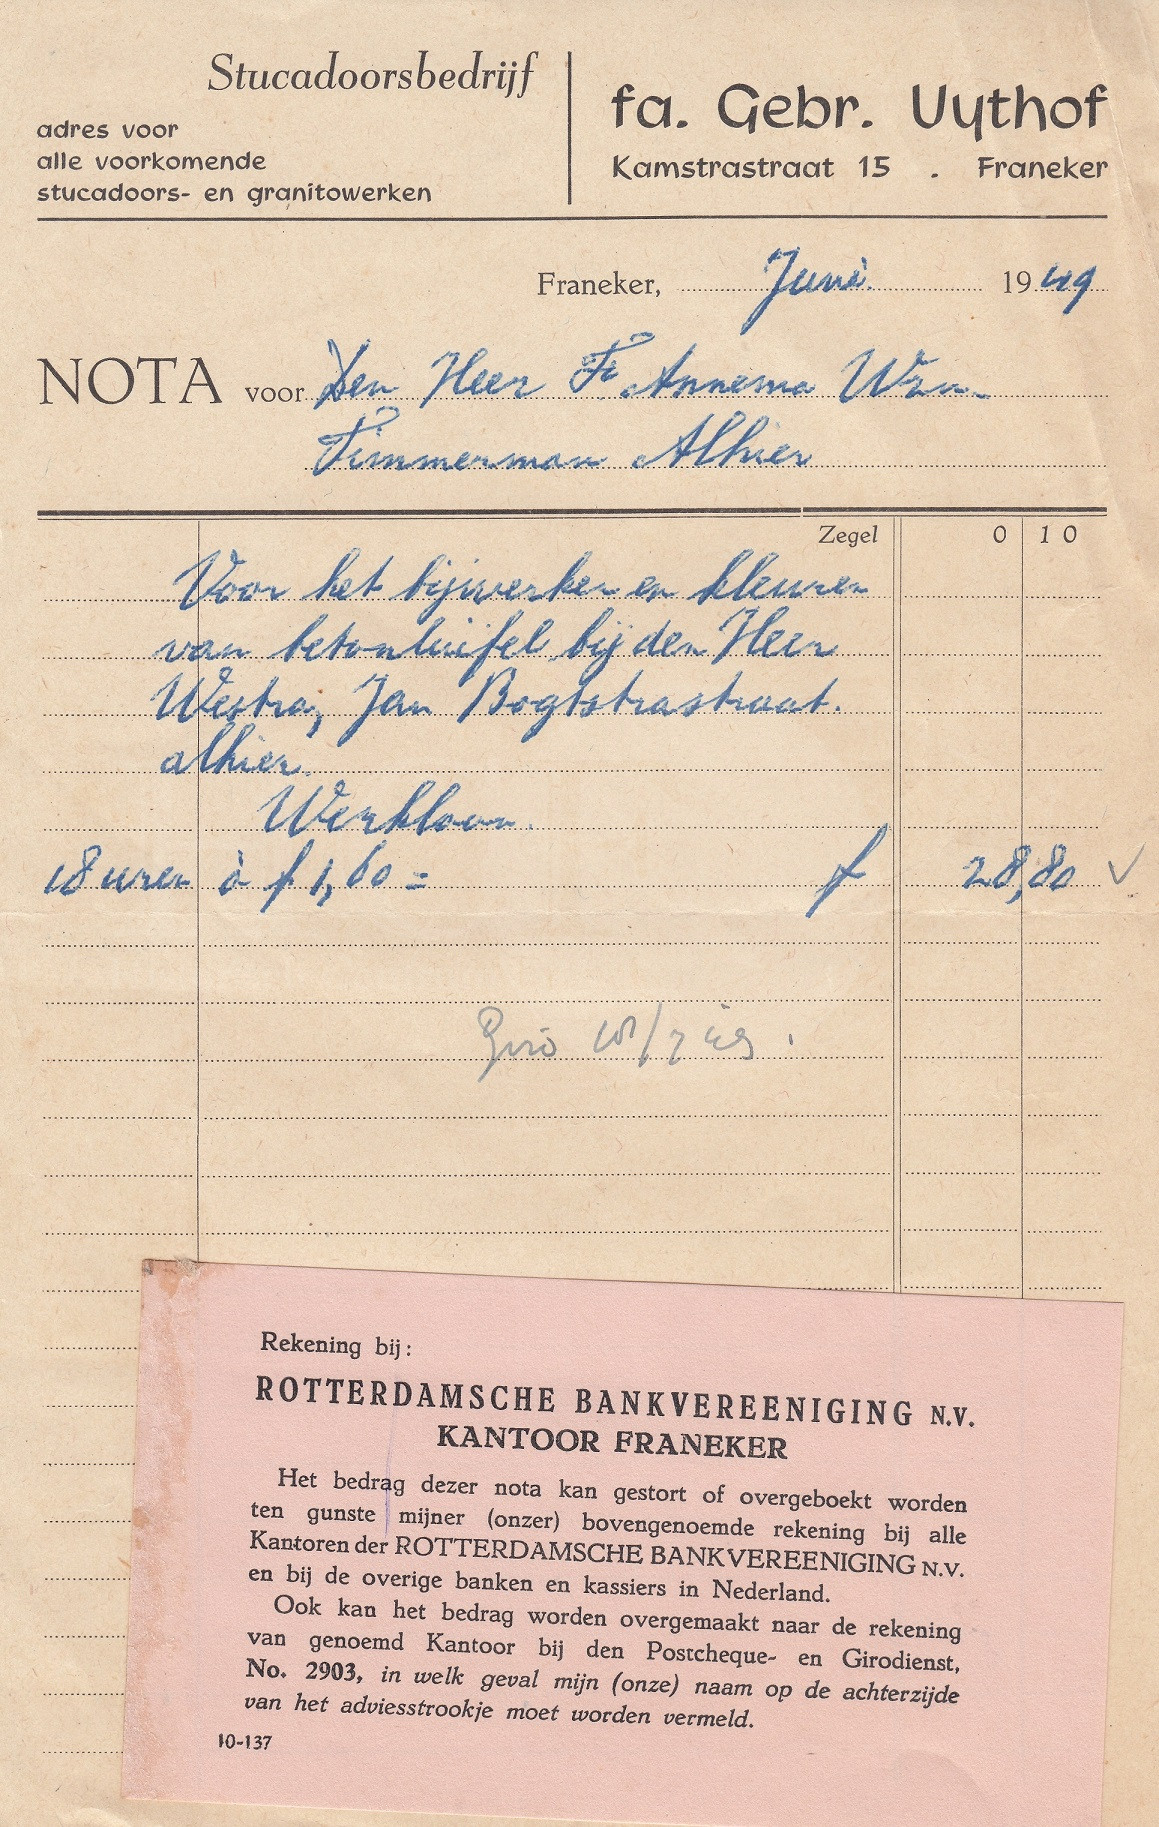 Stucadoorsbedrijf
adres voor
alle voorkomende
stucadoors- en granitowerken
fa. Gebr. Uythof
Kamstrastraat 15 . Franeker
Franeker, Juni 1949
NOTA voor Den Heer Annema Wzn.
Timmerman Alhier
Zegel 0 10
Voor het bijwerken en kleuren
van betonluifel bij den Heer
Westra, Jan Bogtstrastraat.
alhier.
Werkloon.
18 uren à f 1,60 = f 28,80
Giro
Rekening bij:
ROTTERDAMSCHE BANKVEREENIGING N.V.
KANTOOR FRANEKER
Het bedrag dezer nota kan gestort of overgeboekt worden
ten gunste mijner (onzer) bovengenoemde rekening bij alle
Kantoren der ROTTERDAMSCHE BANKVEREENIGING N.V.
en bij de overige banken en kassiers in Nederland.
Ook kan het bedrag worden overgemaakt naar de rekening
van genoemd Kantoor bij den Postcheque- en Girodienst,
No. 2903, in welk geval mijn (onze) naam op de achterzijde
van het adviesstrookje moet worden vermeld.
10-137